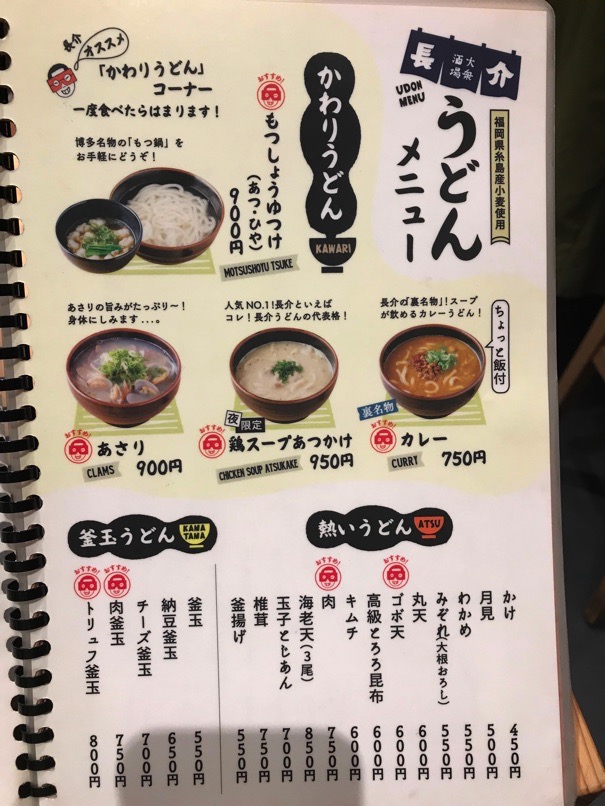 大衆
酒場
長介
UDON
MENU
うどん
メニュー
福岡県糸島産小麦使用
長介
オススメ
「かわりうどん」
コーナー
一度食べたらはまります！
博多名物の「もつ鍋」を
お手軽にどうぞ！
かわりうどん
KAWARI
おすすめ！
もつしょうゆつけ
(あつ・ひや)
900円
MOTSUSHOYU TSUKE
あさりの旨みがたっぷり〜！
身体にしみます...。
おすすめ！
あさり
CLAMS
900円
人気NO.1！長介といえば
コレ！長介うどんの代表格！
夜限定
おすすめ！
鶏スープあつかけ
CHICKEN SOUP ATSUKAKE
950円
長介の「裏名物」！スープ
が飲めるカレーうどん！
ちょっと飯付
裏名物
おすすめ！
カレー
CURRY
750円
熱いうどん
ATSU
かけ 450円
月見 500円
わかめ 550円
みぞれ(大根おろし) 550円
丸天 550円
おすすめ！
ゴボ天 600円
高級とろろ昆布 600円
キムチ 600円
おすすめ！
肉 750円
海老天(3尾) 850円
玉子とじあん 700円
椎茸 750円
釜揚げ 550円
釜玉うどん
KAMA
TAMA
釜玉 550円
納豆釜玉 650円
チーズ釜玉 700円
おすすめ！
肉釜玉 750円
おすすめ！
トリュフ釜玉 800円